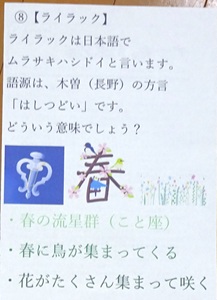 ⑧【ライラック】
ライラックは日本語で
ムラサキハシドイと言います。
語源は、木曽（長野）の方言
「はしつどい」です。
どういう意味でしょう？
春
・春の流星群（こと座）
・春に鳥が集まってくる
・花がたくさん集まって咲く